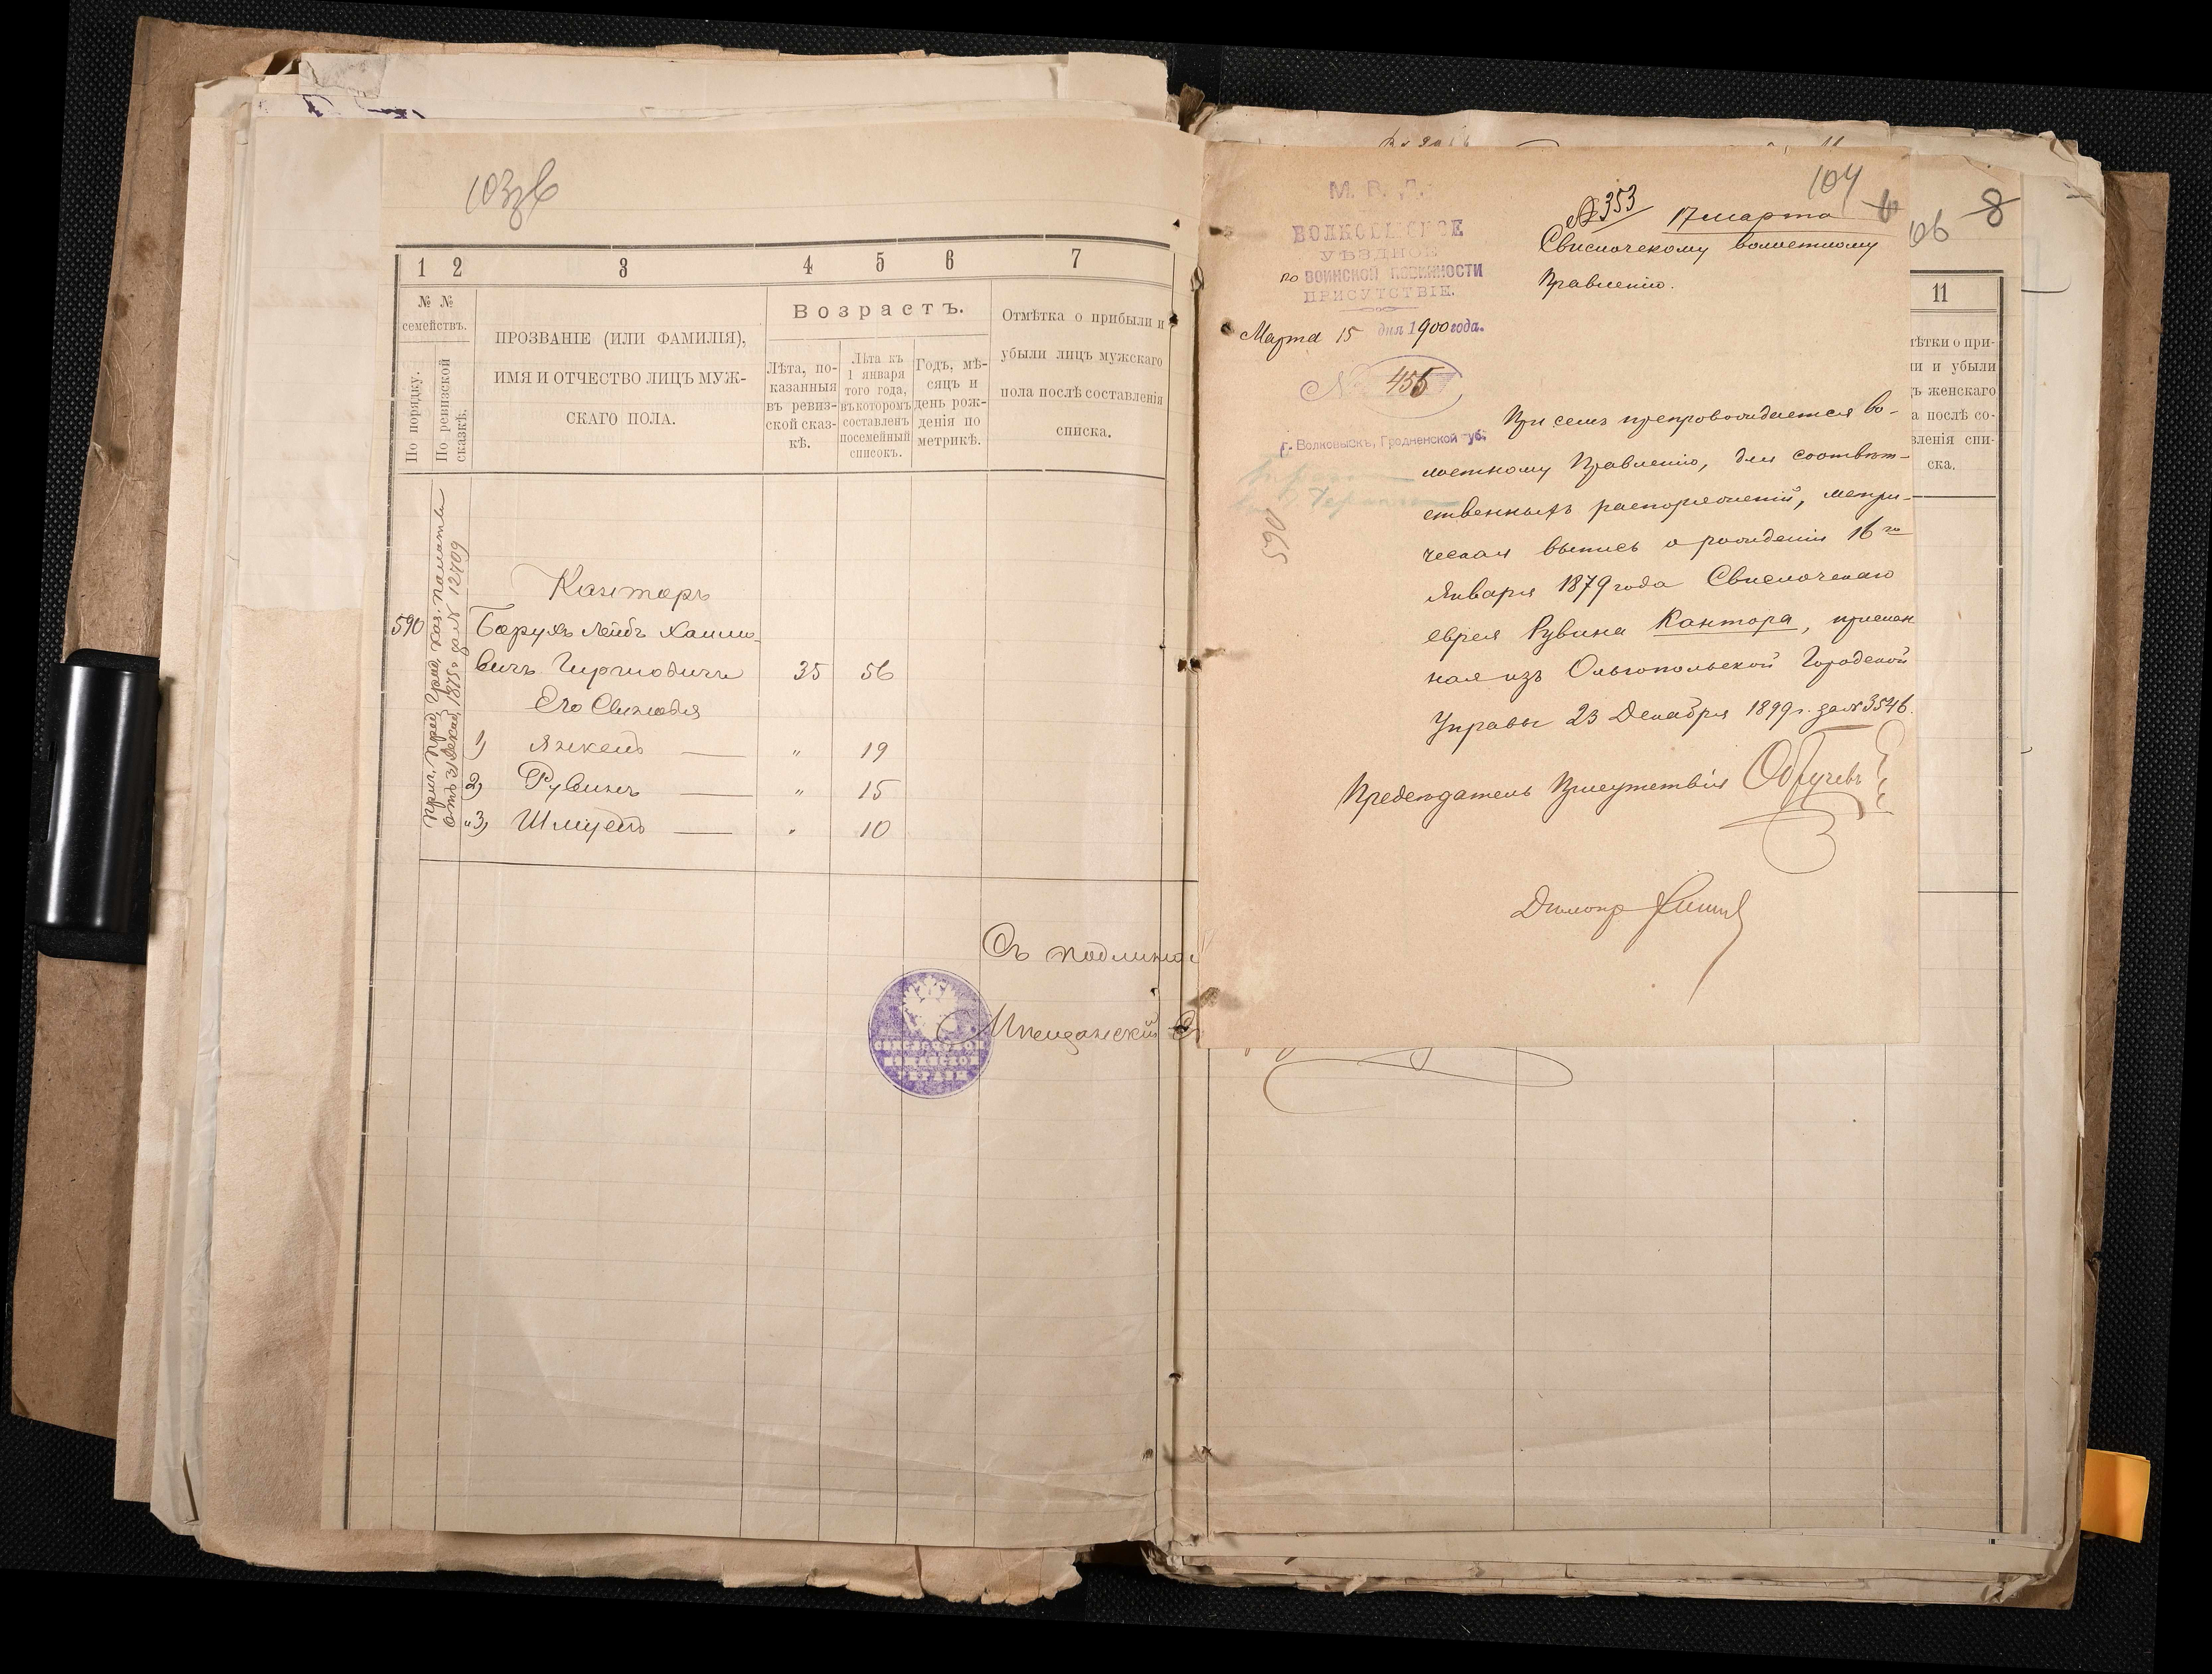 103об
1 2 3 4 5 6 7
№ № семействъ.
По порядку.
По ревизской сказкѣ.
ПРОЗВАНІЕ (ИЛИ ФАМИЛІЯ),
ИМЯ И ОТЧЕСТВО ЛИЦЪ МУЖ-
СКАГО ПОЛА.
Возрастъ.
Лѣта, по-
казанныя
въ ревиз-
ской сказ-
кѣ.
Лѣта къ
1 января
того года,
въ которомъ
составленъ
посемейный
списокъ.
Годъ, мѣ-
сяцъ и
день рож-
денія по
метрикѣ.
Отмѣтка о прибыли и
убыли лицъ мужскаго
пола послѣ составленія
списка.
Каз. Палаты
1875 г. за № 12709
Канторъ
590 Борухъ Лейбъ Хаимо-
вичъ Гиршовичъ 35 56
Его Сыновья
1) Янкель — " 19
2) Рувинъ — " 15
"3) Шмуель — " 10
Съ подлинно
СВИСЛОЧСКОЙ
МѢЩАНСКОЙ
УПРАВЫ
Мѣщанскій
104
М. В. Д.
ВОЛКОВЫСКОЕ
УѢЗДНОЕ
по ВОИНСКОЙ ПОВИННОСТИ
ПРИСУТСТВІЕ.
Марта 15 дня 1900 года.
№ 455
г. Волковыскъ, Гродненской губ.
590
№ 353 17 марта
Свислочскому волостному
Правленію.
При семъ препровождается во-
лостному Правленію, для соотвѣт-
ственныхъ распоряженій, метри-
ческая выпись о рожденіи 16го
Января 1879 года Свислочскаго
еврея Рувина Кантора, прислан
ная изъ Ольгопольской Городской
Управы 23 Декабря 1899 г. за № 3546.
Предсѣдатель Присутствія
8
11
тѣтки о при-
ли и убыли
ъ женскаго
а послѣ со-
вленія спи-
ска.